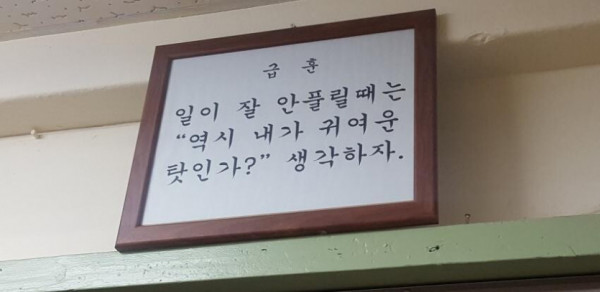 급 훈
일이 잘 안플릴때는
“역시 내가 귀여운
탓인가?” 생각하자.